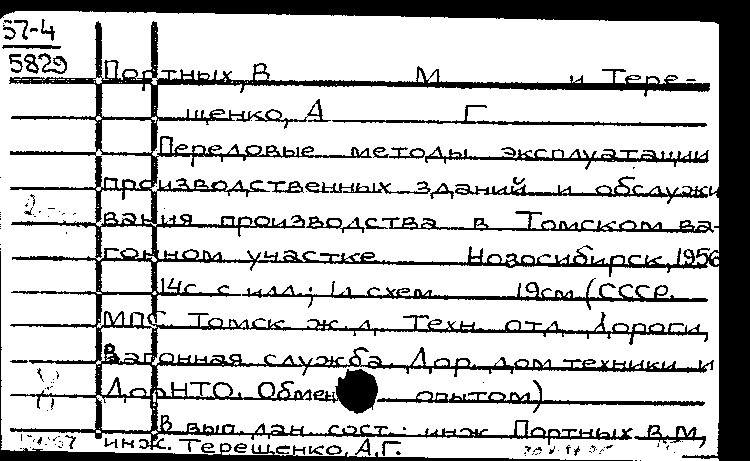 57-4
5829
Портных, В М и Тере-
щенко, А Г
Передовые методы эксплуатации
производственных зданий и обслужи
вания производства в Томском ва-
гонном участке Новосибирск, 1956
14с. с илл.; 1л схем. 19см (СССР.
МПС. Томск ж. д. Техн. отд. дороги,
Вагонная служба. Дор. дом техники и
ДорНТО. Обмен опытом)
В вып. дан. сост.: инж Портных В. М,
инж. Терещенко, А. Г.